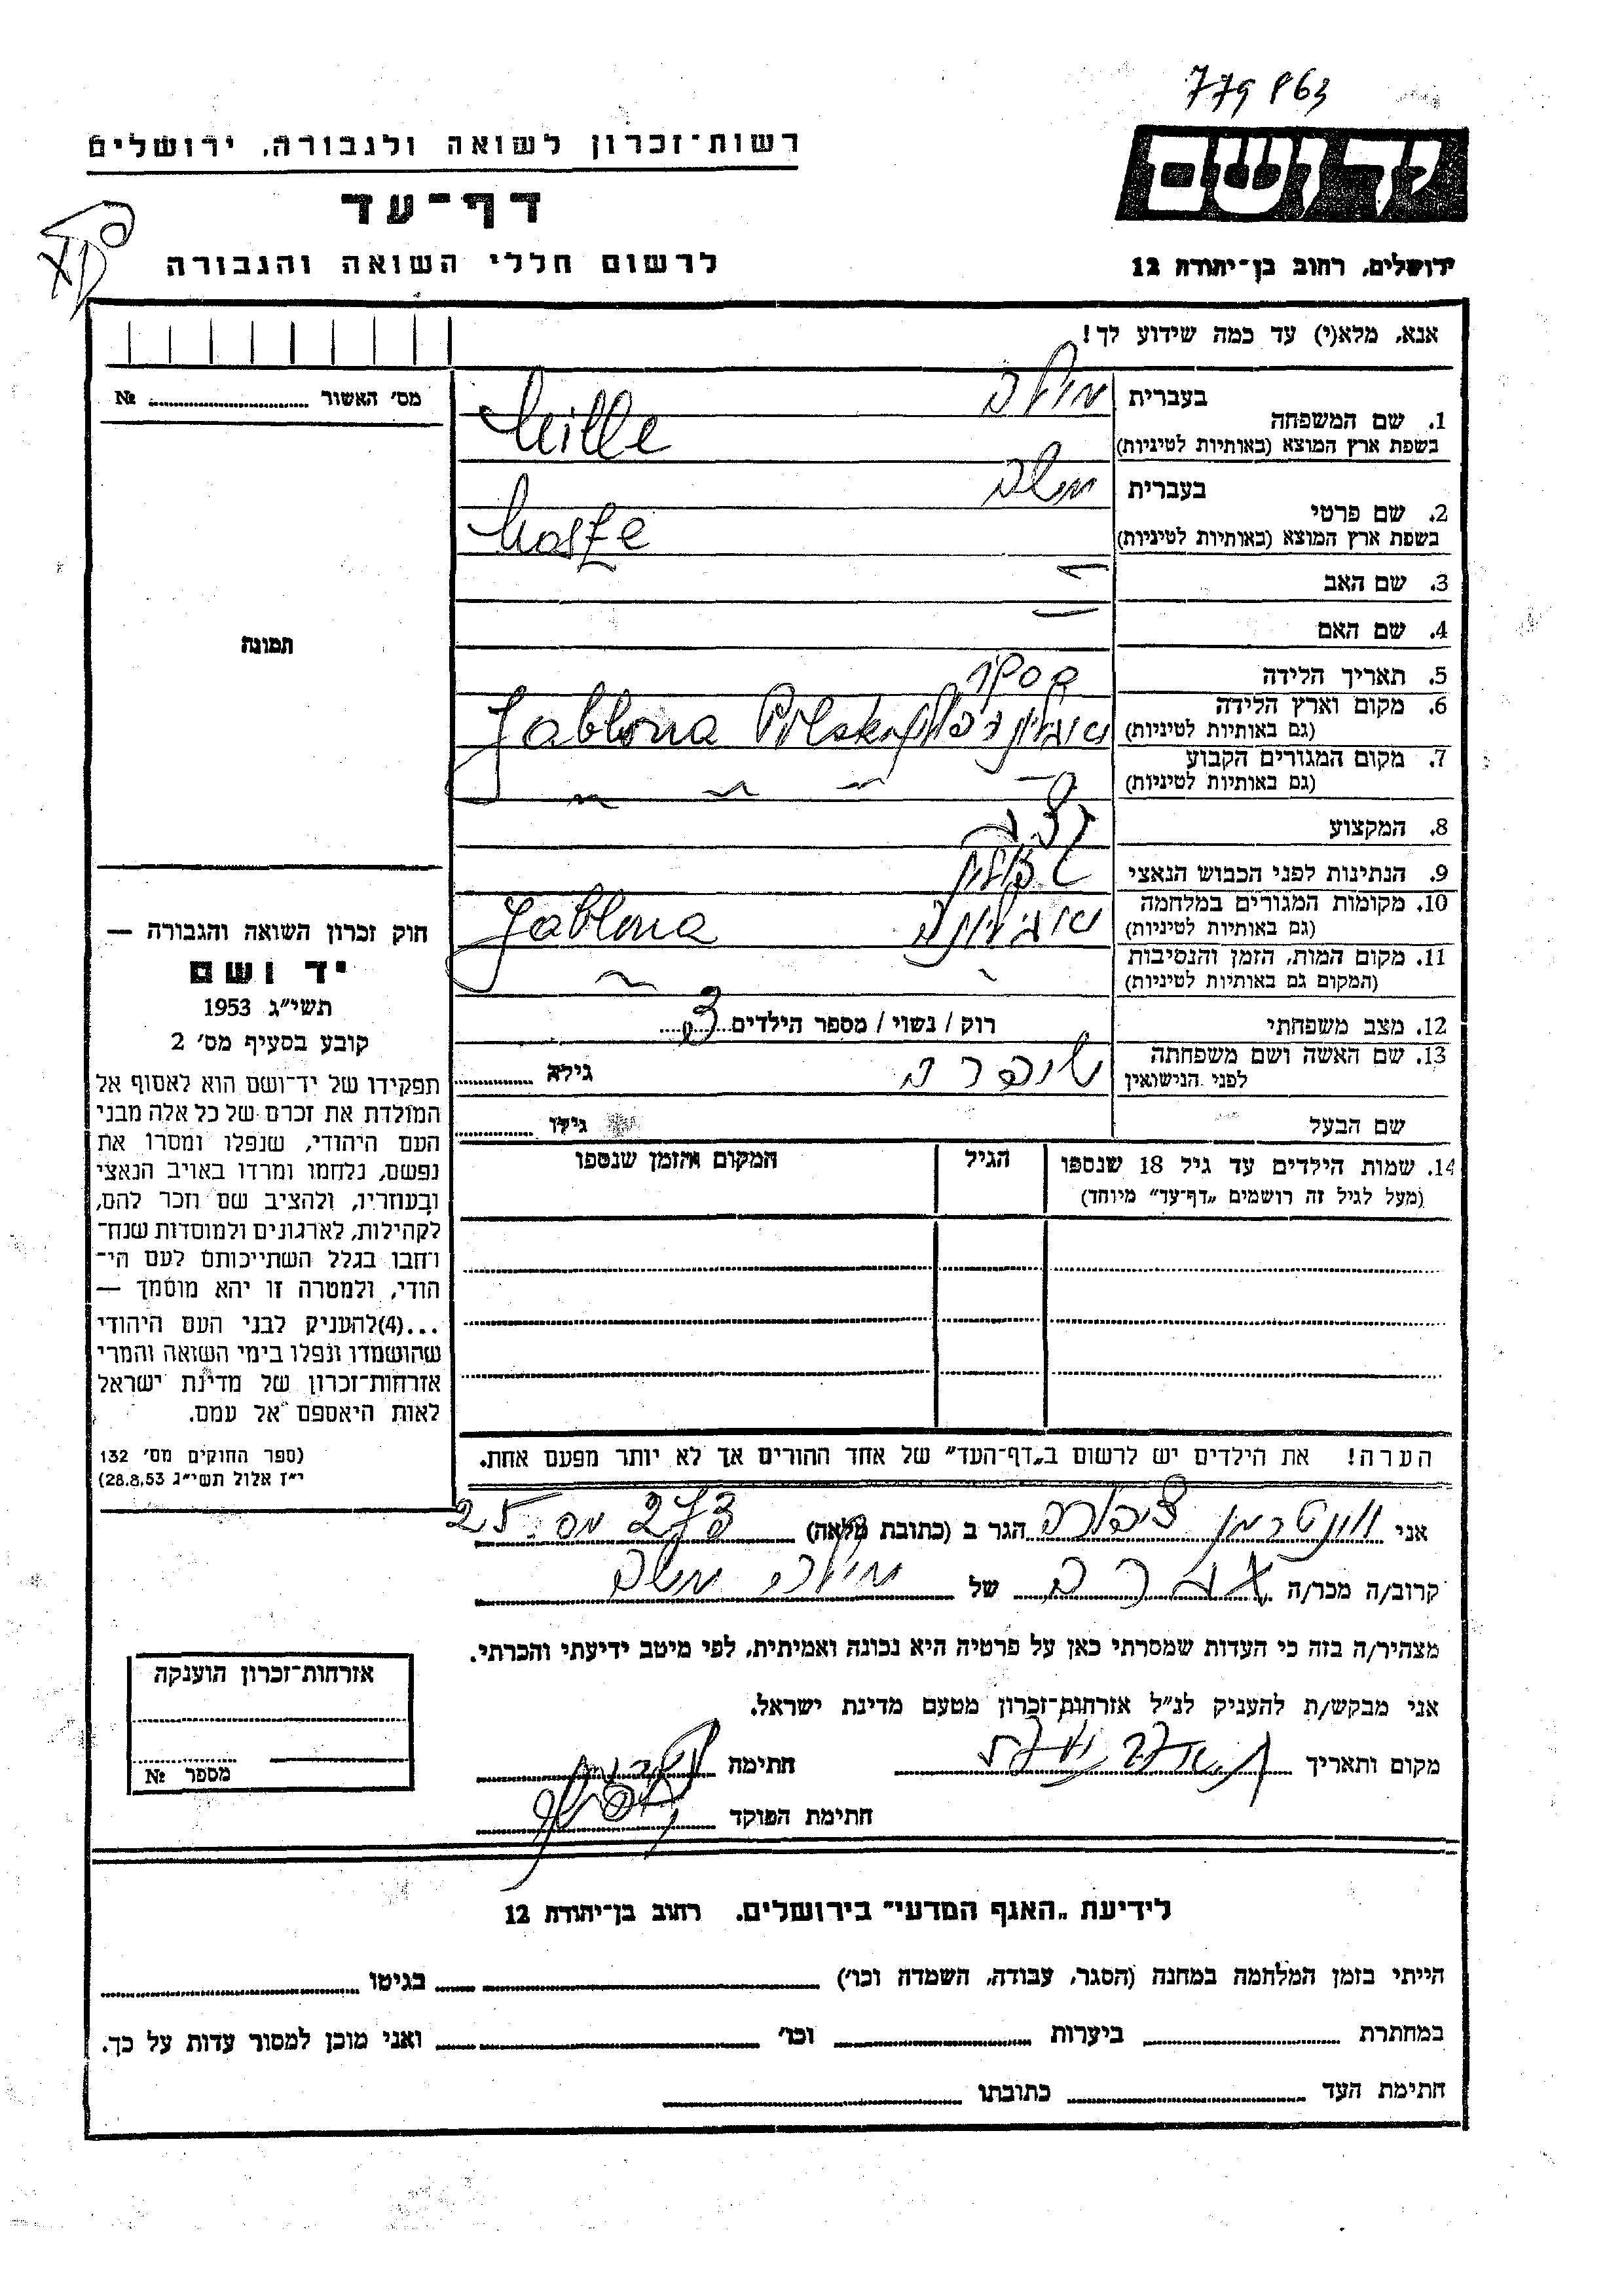 779863
רשות־זכרון לשואה ולגבורה, ירושלים
יד ושם
דף־עד
לרשום חללי השואה והגבורה
ירושלים, רחוב בן־יהודה 12
אנא, מלא(י) עד כמה שידוע לך!
מס׳ האשור № 
בעברית
1. שם המשפחה Mille
בשפת ארץ המוצא (באותיות לטיניות)
בעברית משה
2. שם פרטי Mosze
בשפת ארץ המוצא (באותיות לטיניות)
3. שם האב
4. שם האם
5. תאריך הלידה
6. מקום וארץ הלידה Jablona Polska
(גם באותיות לטיניות)
7. מקום המגורים הקבוע
(גם באותיות לטיניות)
8. המקצוע
9. הנתינות לפני הכבוש הנאצי
10. מקומות המגורים במלחמה Jablona
(גם באותיות לטיניות)
11. מקום המות, הזמן והנסיבות
(המקום גם באותיות לטיניות)
12. מצב משפחתי רוק / נשוי / מספר הילדים 3
13. שם האשה ושם משפחתה שיפרה גילה
לפני הנישואין
שם הבעל גילו
14. שמות הילדים עד גיל 18 שנספו הגיל המקום והזמן שנספו
(מעל לגיל זה רושמים „דף־עד״ מיוחד)
הערה! את הילדים יש לרשום ב„דף־העד״ של אחד ההורים אך לא יותר מפעם אחת.
תמונה
חוק זכרון השואה והגבורה —
יד ושם
תשי״ג 1953
קובע בסעיף מס׳ 2
תפקידו של יד־ושם הוא לאסוף אל
המולדת את זכרם של כל אלה מבני
העם היהודי, שנפלו ומסרו את
נפשם, נלחמו ומרדו באויב הנאצי
ובעוזריו, ולהציב שם וזכר להם,
לקהילות, לארגונים ולמוסדות שנח־
רחבו בגלל השתייכותם לעם הי־
הודי, ולמטרה זו יהא מוסמך —
...(4)להעניק לבני העם היהודי
שהושמדו ונפלו בימי השואה והמרי
אזרחות־זכרון של מדינת ישראל
לאות היאספם אל עמם.
(ספר החוקים מס׳ 132
י״ז אלול תשי״ג 28.8.53)
אני ציפורה הגר ב (כתובת מלאה) 273 מס. 25
קרוב/ה מכר/ה של משה
מצהיר/ה בזה כי העדות שמסרתי כאן על פרטיה היא נכונה ואמיתית, לפי מיטב ידיעתי והכרתי.
אני מבקש/ת להעניק לנ״ל אזרחות־זכרון מטעם מדינת ישראל.
מקום ותאריך חתימה
חתימת הפוקד
אזרחות־זכרון הוענקה
מספר №
לידיעת „האגף המדעי״ בירושלים, רחוב בן־יהודה 12
הייתי בזמן המלחמה במחנה (הסגר, עבודה, השמדה וכו׳) בגיטו
במחתרת ביערות וכו׳ ואני מוכן למסור עדות על כך.
חתימת העד כתובתו